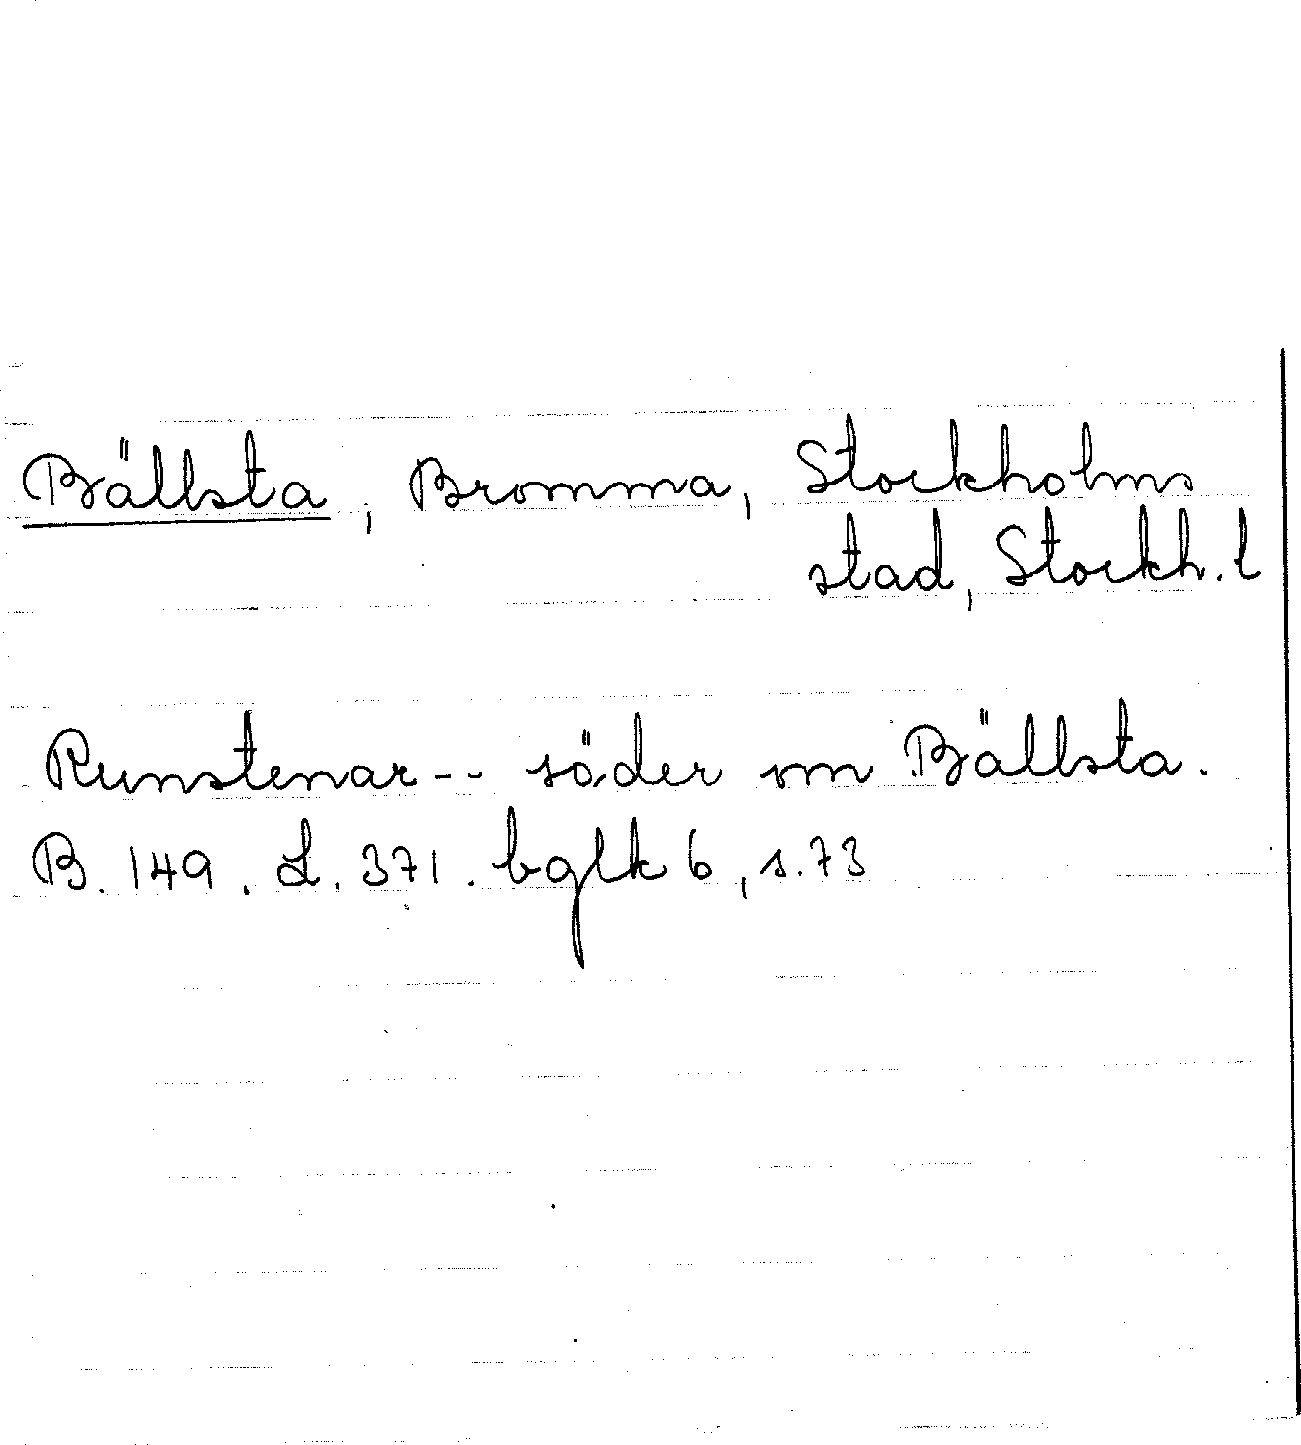 Bällsta, Bromma, Stockholms
stad, Stockh. l
Runstenar -- söder om Bällsta.
B. 149. L. 371. bglk 6, s. 73